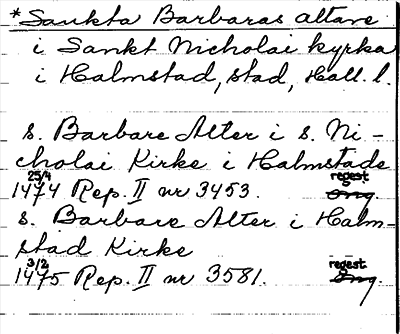 *Sankta Barbaras altare
i Sankt Nicholai kyrka
i Halmstad, stad, Hall. l.
s. Barbare Alter i s. Ni-
cholai Kirke i Halmstade
25/4 regest
1474 Rep. II nr 3453. Orig.
s. Barbare Alter i Halm-
stad Kirke
3/2 regest
1475 Rep. II nr 3581. Orig.